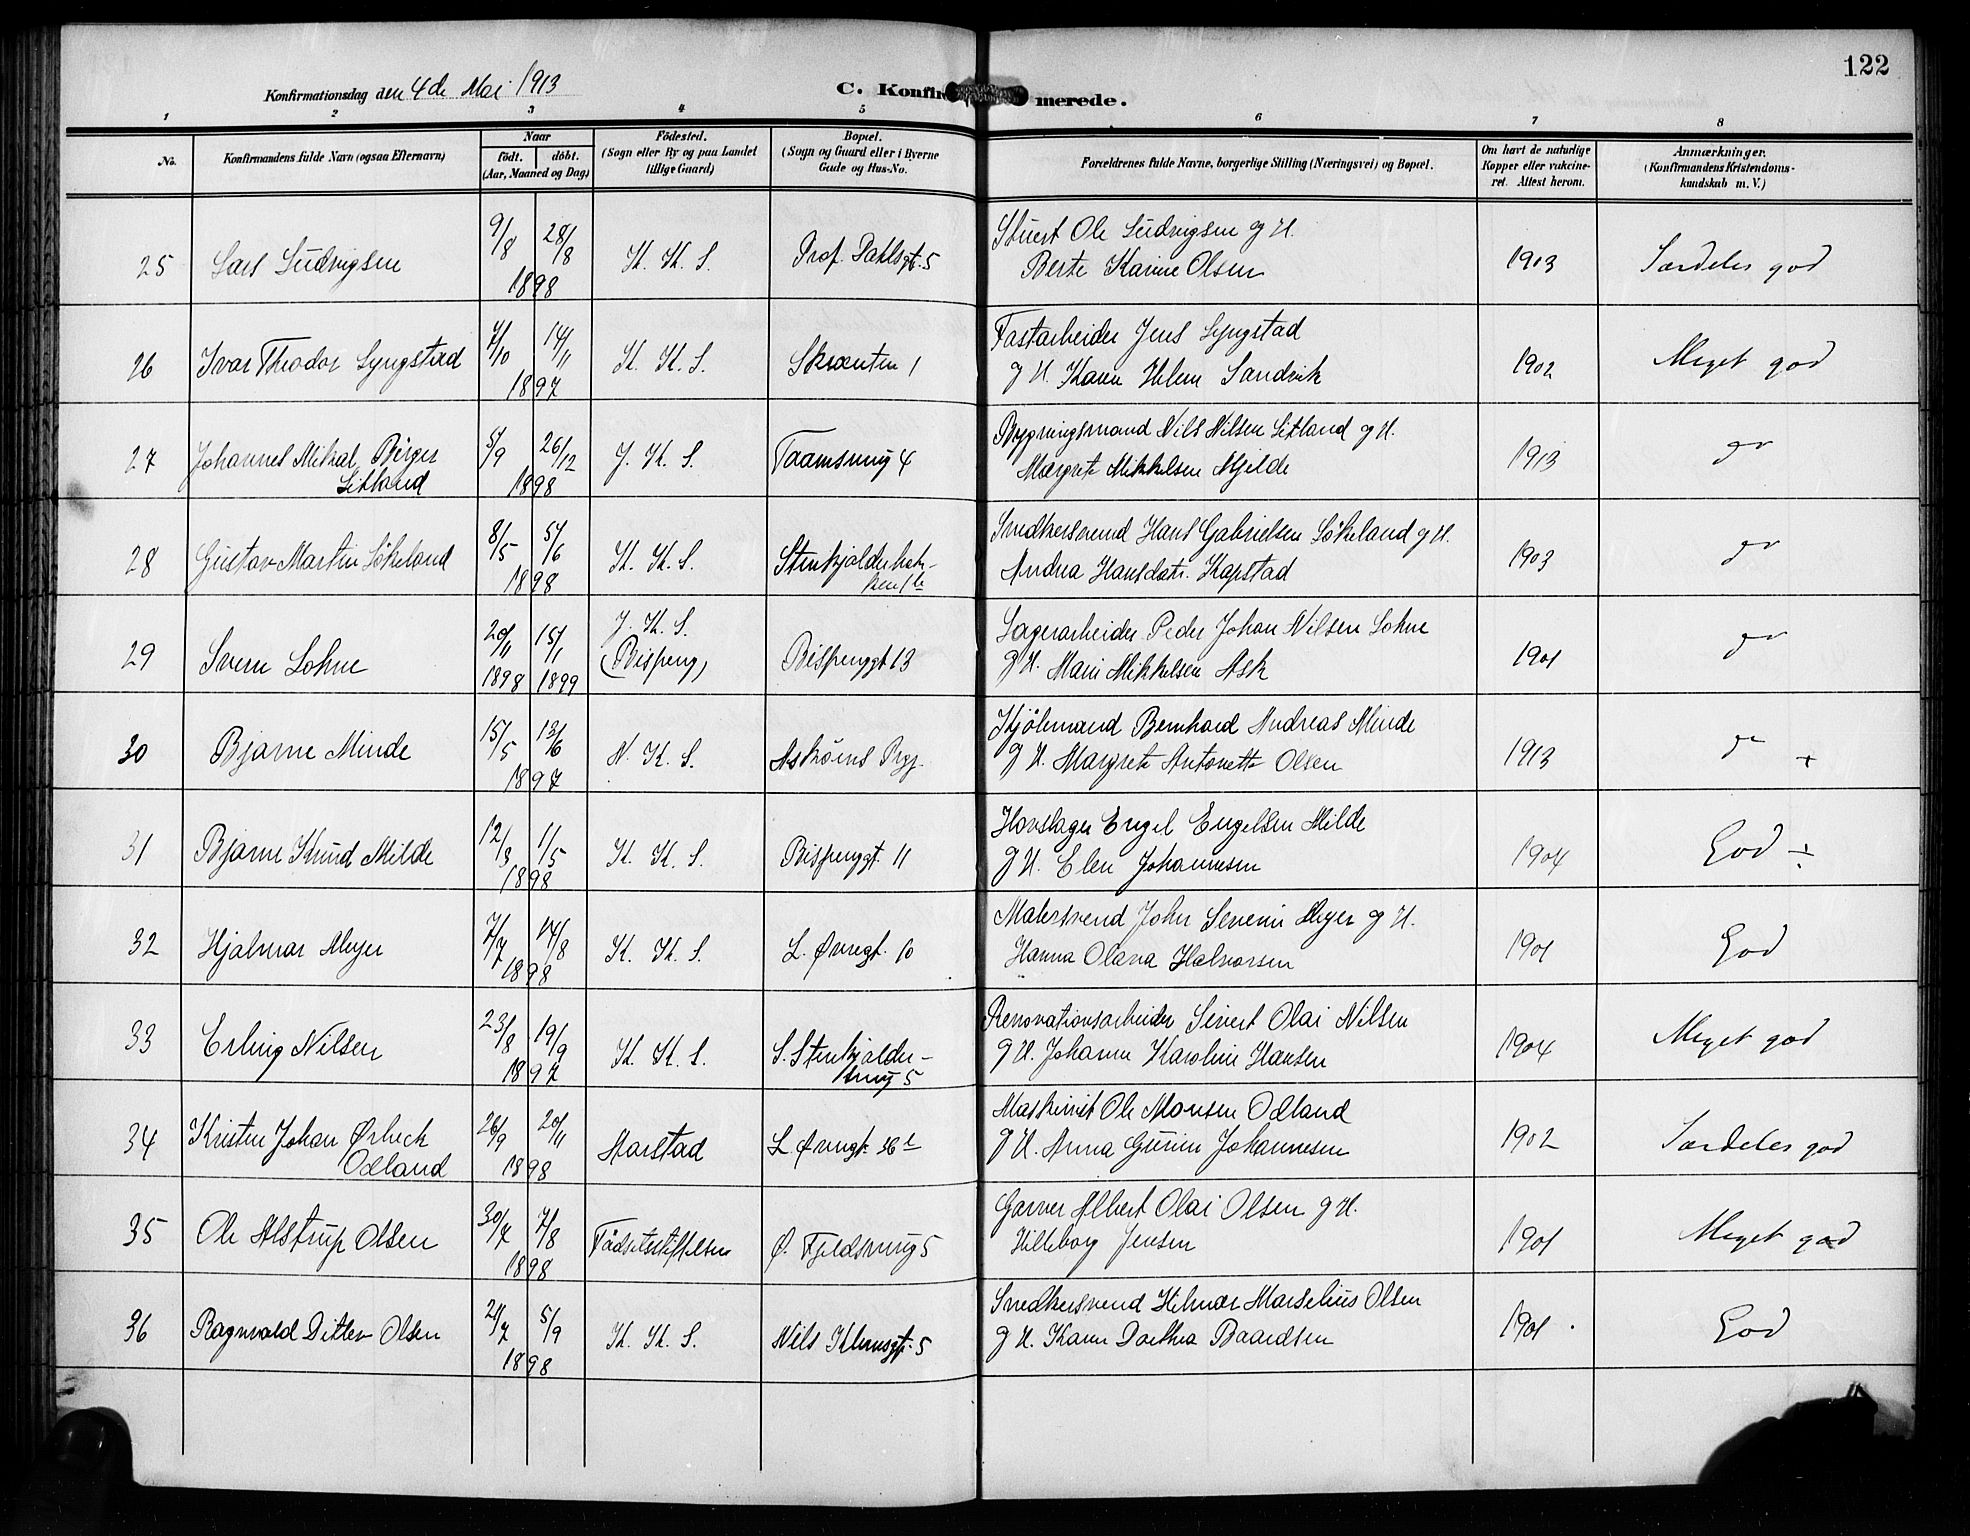 122
Konfirmationsdag den 4de Mai 1913
C. Konfirmerede.
1 2 3 4 5 6 7 8
No. Konfirmandens fulde Navn (ogsaa Efternavn) Naar født. døbt. (Aar, Maaned og Dag) Fødested. (Sogn eller By og paa Landet tillige Gaard) Bopæl. (Sogn og Gaard eller i Byerne Gade og Hus-No. Forældrenes fulde Navne, borgerlige Stilling (Næringsvei) og Bopæl. Om havt de naturlige Kopper eller vakcineret. Attest herom. Anmærkninger. (Konfirmandens Kristendomskundskab m. V.)
25 Lars Ludvigsen 9/8 28/8 1898 K. K. S. Prof. Dahlsgt. 5 Stuert Ole Ludvigsen g H. Berte Karine Olsen 1913 Særdeles god
26 Ivar Theodor Lyngstad 7/10 14/11 1897 K. K. S. Skrænten 1 Fastarbeider Jens Lyngstad g H. Karen Helene Sandvik 1902 Meget god
27 Johannes Mikal Birger Litland 5/9 26/12 1898 J. K. S. Taarnsmug 4 Bygningsmand Nils Nilsen Litland g H. Margrete Mikkelsen Mjelde 1913 do
28 Gustav Martin Løkeland 8/5 5/6 1898 K. K. S. Stenkjelderbakken 1b Snedkersvend Hans Gabrielsen Løkeland g H. Andrea Hansdatr. Kapstad 1903 do
29 Sverre Lohne 20/11 1898 15/1 1899 J. K. S. (Bispeng) Bispenggt 13 Lagerarbeider Peder Johan Nilsen Lohne g H. Marie Mikkelsen Ask 1901 do
30 Bjarne Minde 15/5 13/6 1897 N. K. S. Askøens Byg. Kjølemand Bernhard Andreas Minde g H. Margrete Antonette Olsen 1913 do +
31 Bjarne Knud Milde 12/3 1/5 1898 K. K. S. Bispenggt. 11 Hovslager Engel Engelsen Milde g H. Elen Johannesen 1904 God ÷
32 Hjalmar Meyer 7/7 14/8 1898 K. K. S. L. Øvregt. 10 Malersvend John Severin Meyer g H. Hanna Olava Halvorsen 1901 God
33 Erling Nilsen 23/8 19/9 1897 K. K. S. S. Stenkjeldersmug 5 Renovationsarbeider Sivert Olai Nilsen g H. Johanne Karoline Hansen 1904 Meget god
34 Kristen Johan Ørbeck Odland 26/9 20/11 1898 Harstad L. Øvregt. Maskinist Ole Monsen Odland g H. Anna Gurine Johannesen 1902 Særdeles god
35 Ole Alstrup Olsen 30/7 7/8 1898 Fødselsstiftelsen Ø. Fjeldsmug 5 Garver Albert Olai Olsen g H. Hilleborg Jensen 1901 Meget god
36 Ragnvald Ditlev Olsen 21/7 5/9 1898 K. K. S. Nils Klemsgt. 5 Snedkersvend Hilmar Marselius Olsen g H. Karen Dorthea Baardsen 1901 God